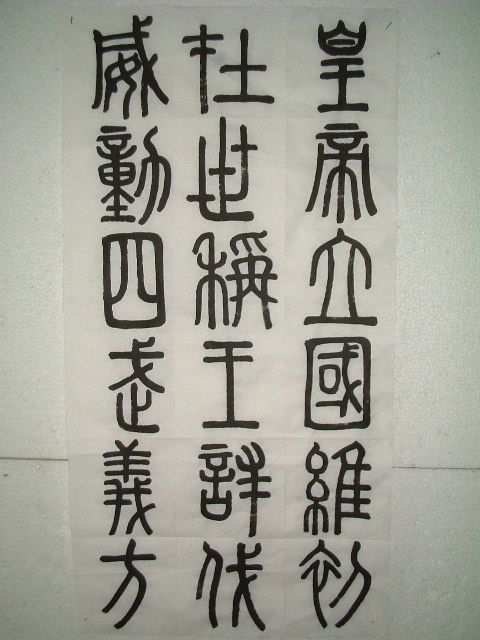 皇帝立國維初
在世稱王討伐
威動四武義方